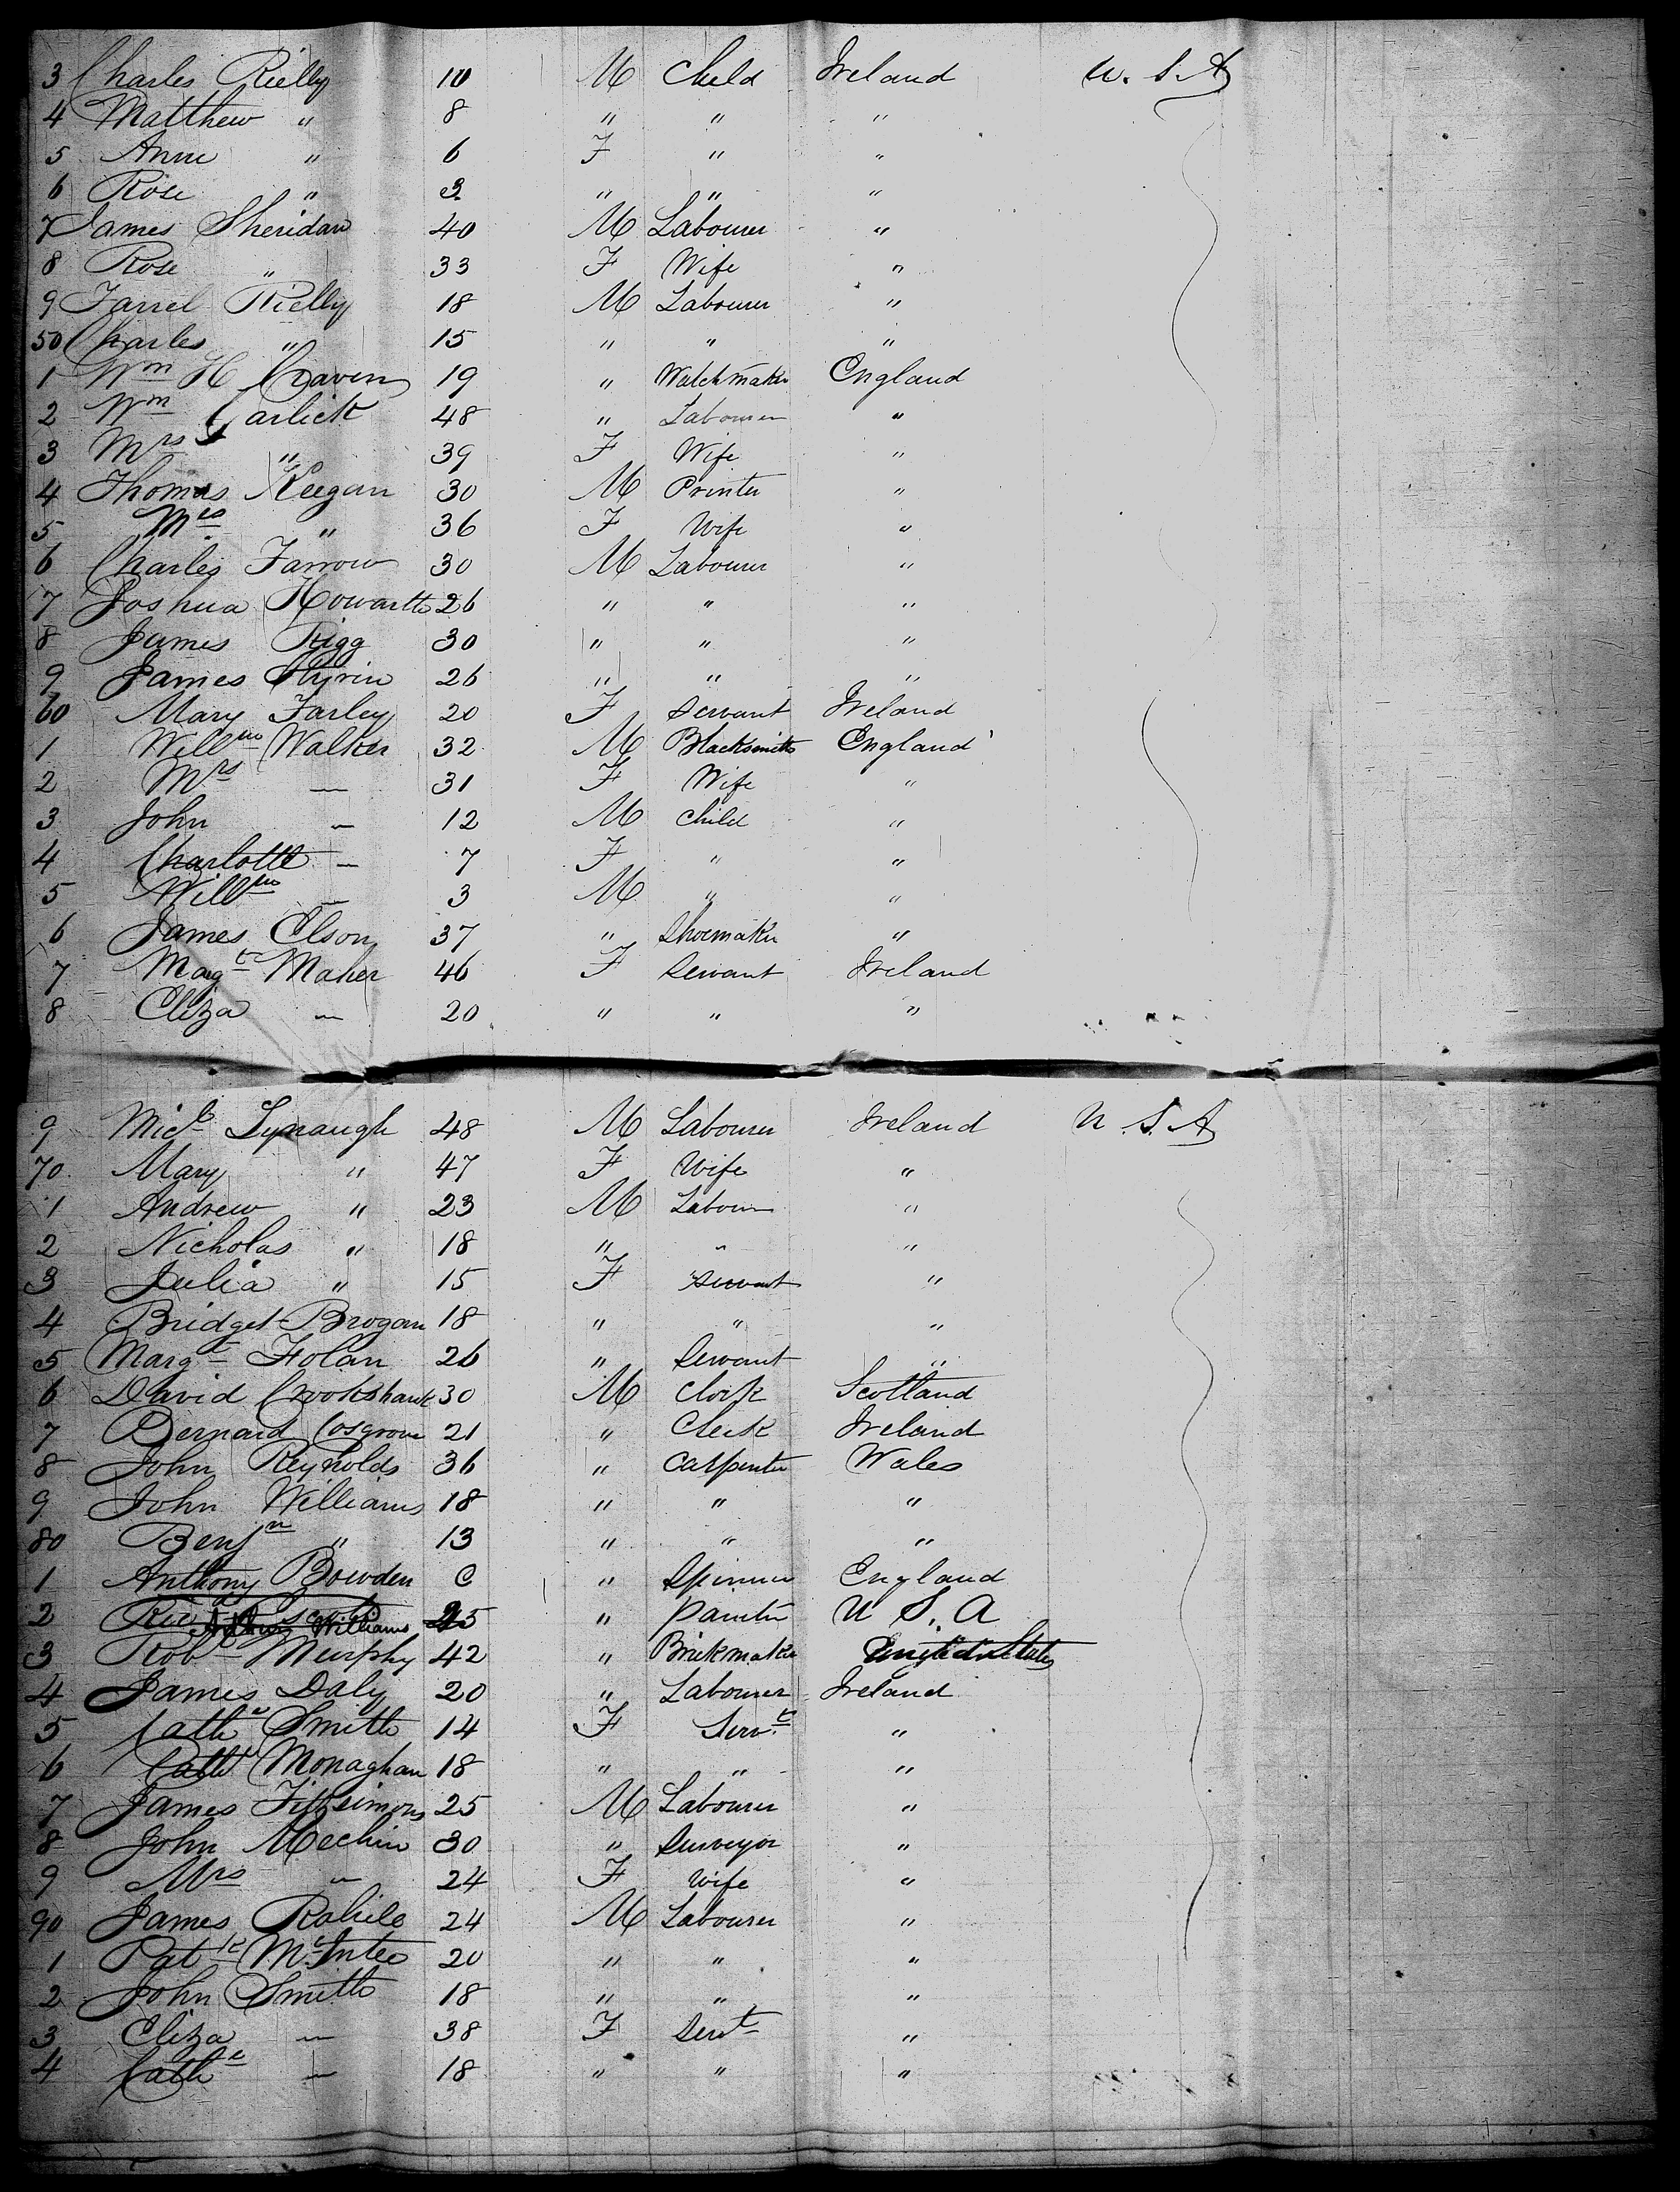 3 Charles Rielly 10 M Child Ireland U. S. A
4 Matthew " 8 " " "
5 Anne " 6 F " "
6 Rose " 3 " " "
7 James Sheridan 40 M Labourer "
8 Rose " 33 F Wife "
9 Farrel Rielly 18 M Labourer "
50 Charles " 15 " " "
1 Wm H Craven 19 " Watchmaker England
2 Wm Garlick 48 " Labourer "
3 Mrs " 39 F Wife "
4 Thomas Keegan 30 M Printer "
5 Mrs " 36 F Wife "
6 Charles Farrow 30 M Labourer "
7 Joshua Howarth 26 " " "
8 James Rigg 30 " " "
9 James 26 " " "
60 Mary Farley 20 F Servant Ireland
1 Willm Walker 32 M Blacksmith England
2 Mrs — 31 F Wife "
3 John — 12 M Child "
4 Charlotte — 7 F " "
5 Willm — 3 M " "
6 James Elson 37 " Shoemaker "
7 Margt Maher 46 F Servant Ireland
8 Eliza — 20 " " "
9 Micl Lynaugh 48 M Labourer Ireland U. S. A
70 Mary " 47 F Wife "
1 Andrew " 23 M Labourer "
2 Nicholas " 18 " " "
3 Julia " 15 F Servant "
4 Bridget Brogan 18 " " "
5 Margt Folan 26 " Servant "
6 David Crookshank 30 M Scotland
7 Bernard Cosgrove 21 " Clerk Ireland
8 John Reynolds 36 " Carpenter Wales
9 John Williams 18 " " "
80 Benjn " 13 " " "
1 Anthony Bowden " Spinner England
2 Williams 25 " Painter U S. A
3 Robt Murphy 42 " Brickmaker United States
4 James Daly 20 " Labourer Ireland
5 Cathe Smith 14 F Servt "
6 Cathe Monaghan 18 " " "
7 James Fitzsimons 25 M Labourer "
8 John Mechin 30 " Surveyor "
9 Mrs — 24 F Wife "
90 James 24 M Labourer "
1 Patk McIntee 20 " " "
2 John Smith 18 " " "
3 Eliza — 38 F Servt "
4 Cathe — 18 " " "